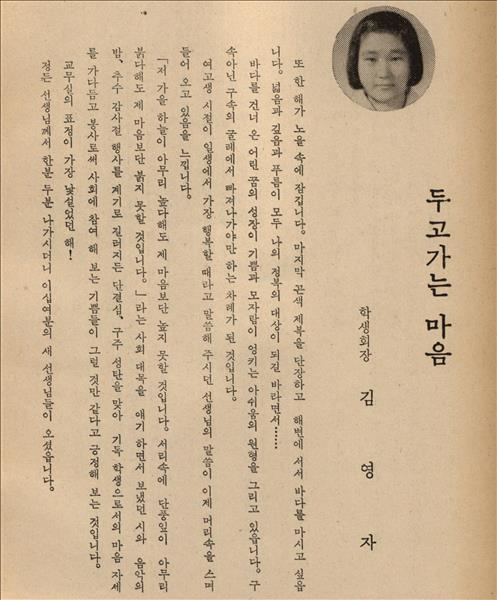 두고가는 마음
학생회장 김 영 자
또 한 해가 노을 속에 잠깁니다. 마지막 곤색 제복을 단장하고 해변에 서서 바다를 마시고 싶읍
니다. 넓음과 깊음과 푸름이 모두 나의 정복의 대상이 되길 바라면서……
바다를 건너 온 어린 꿈의 성장이 기쁨과 모자람이 엉키는 아쉬움의 원형을 그리고 있읍니다. 구
속아닌 구속의 굴레에서 빠져나가야만 하는 차례가 된 것입니다.
여고생 시절이 일생에서 가장 행복할 때라고 말씀해 주시던 선생님의 말씀이 이제 머리속을 스며
들어 오고 있음을 느낍니다.
「저 가을 하늘이 아무리 높다해도 제 마음보단 높지 못할 것입니다. 서리속에 단풍잎이 아무리
붉다해도 제 마음보단 붉지 못할 것입니다.」라는 사회 대목을 얘기 하면서 보냈던 시와 음악의
밤, 추수 감사절 행사를 계기로 길러지든 단결심, 구주 성탄을 맞아 기독 학생으로서의 마음 자세
를 가다듬고 봉사로써 사회에 참여 해 보는 기쁨들이 그럴 것만 같다고 긍정해 보는 것입니다.
교무실의 표정이 가장 낯설었던 해!
정든 선생님께서 한두분 나가시더니 이십여분의 새 선생님들이 오셨읍니다.